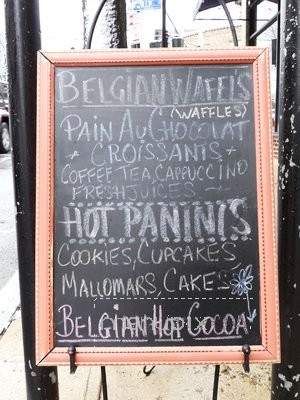 BELGIAN WAFEL'S
(WAFFLES)
PAIN AU CHOCOLAT
+ CROISSANTS +
COFFEE TEA, CAPPUCCINO
FRESH JUICES
HOT PANINIS
COOKIES, CUPCAKES
MALLOMARS, CAKES
BELGIAN HOT COCOA